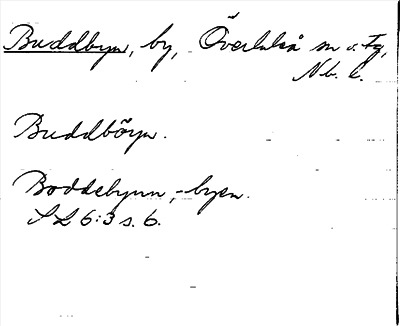 Buddbyn, by, Överluleå sn o. tg,
Nb. l.
Buddböyn.
Boddebynn, -byen.
SL 6:3 s. 6.